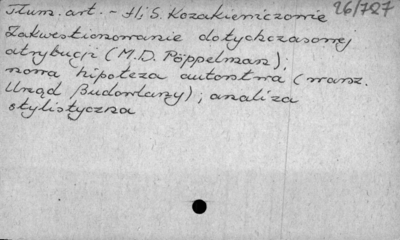 Tłum. art. - H; S. Kozakiewiczowie 26/727
Zakwestionowanie dotychczasowej
atrybucji (M.D. Pöppelman);
nowa hipoteza autorstwa (warsz.
Urząd Budowlany); analiza
stylistyczna